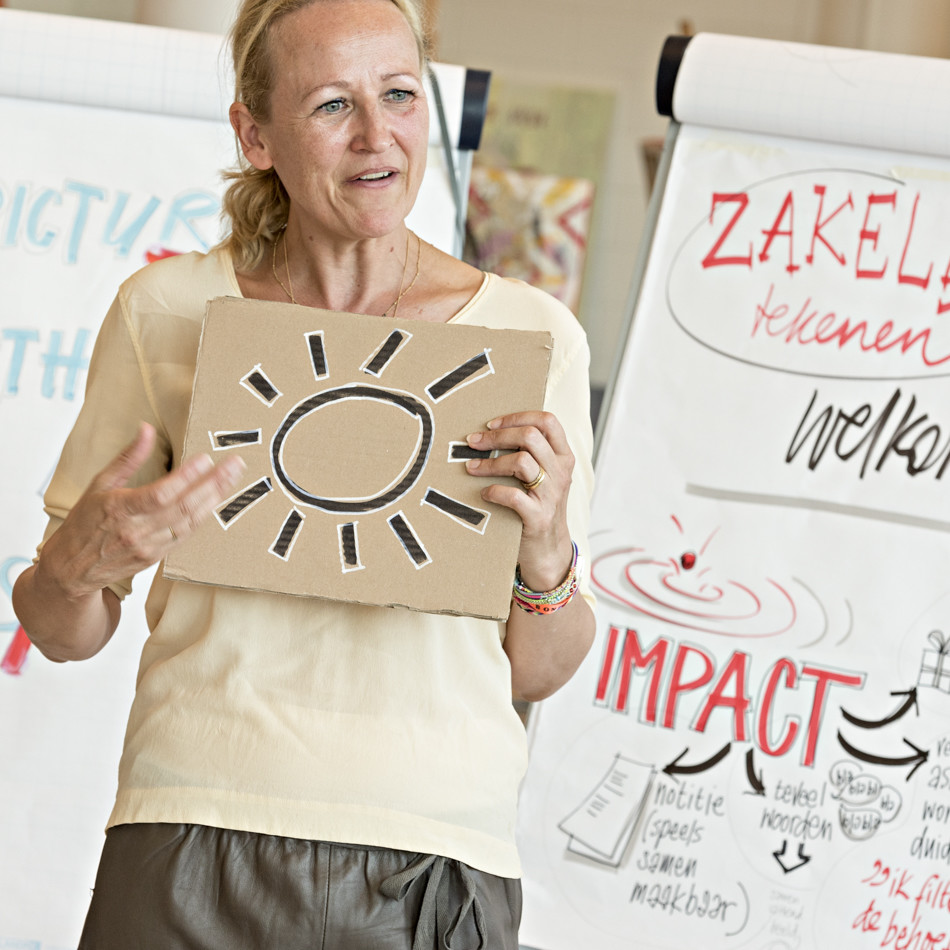 PICTUR
TH
ZAKEL
tekenen
welko
IMPACT
notitie
(speels
samen
maakbaar)
teveel
woorden
bla bla
duid
ik filt
de behoe